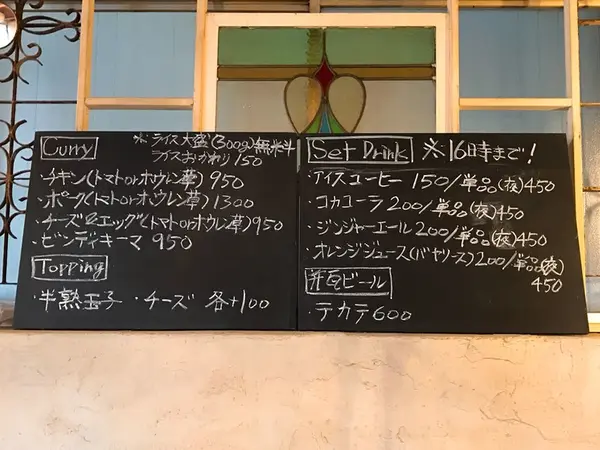 Curry
※ライス大盛(300g)無料
ライスおかわり150
・チキン(トマトorホウレン草)950
・ポーク(トマトorホウレン草)1300
・チーズ&エッグ(トマトorホウレン草)950
・ビンディキーマ 950
Topping
・半熟玉子 ・チーズ 各+100
Set Drink ※16時まで!
・アイスコーヒー 150/単品(夜)450
・コカコーラ 200/単品(夜)450
・ジンジャーエール 200/単品(夜)450
・オレンジジュース(バヤリース)200/単品(夜)
450
ビール
・テカテ600